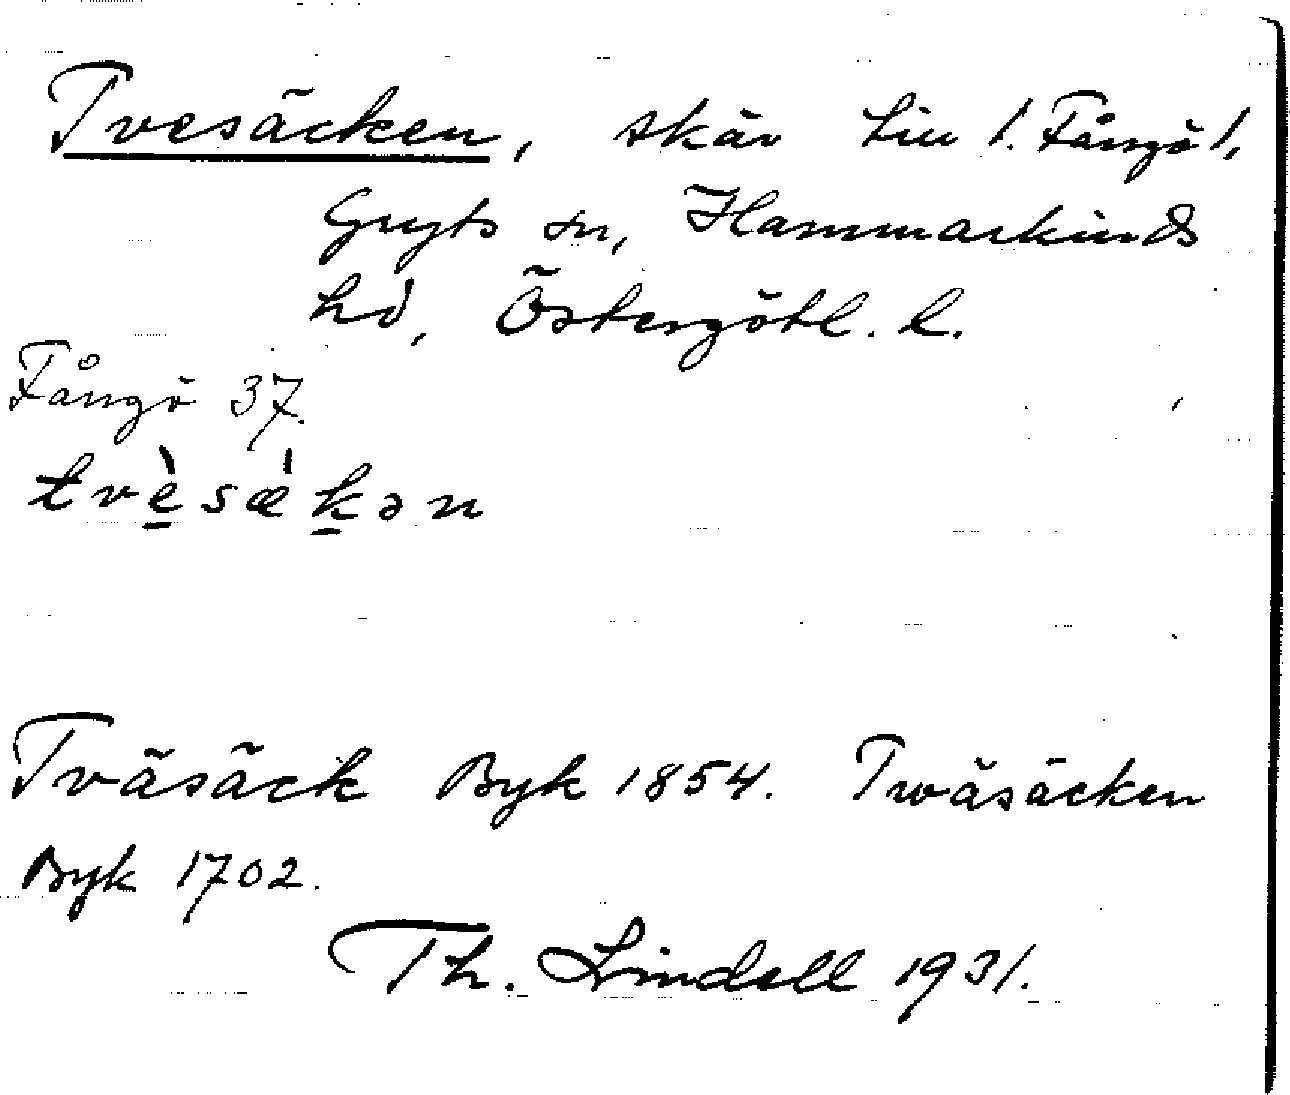 Tvesäcken, skär till l. Fångö l,
Gryts sn, Hammarkinds
hd, Östergötl. l.
Fångö 37.
tvèsǽkən
Tväsäck Byk 1854. Twäsäcken
Byk 1702.
Th. Lindell 1931.